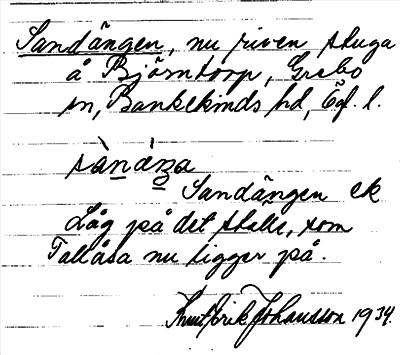 Sandängen, nu riven stuga
å Björntorp, Grebo
sn, Bankekinds hd, Ögl. l.
sànána
Sandängen ek
Låg på det ställe, som
Tallåsa nu ligger på.
Knut Erik Johansson 1934.